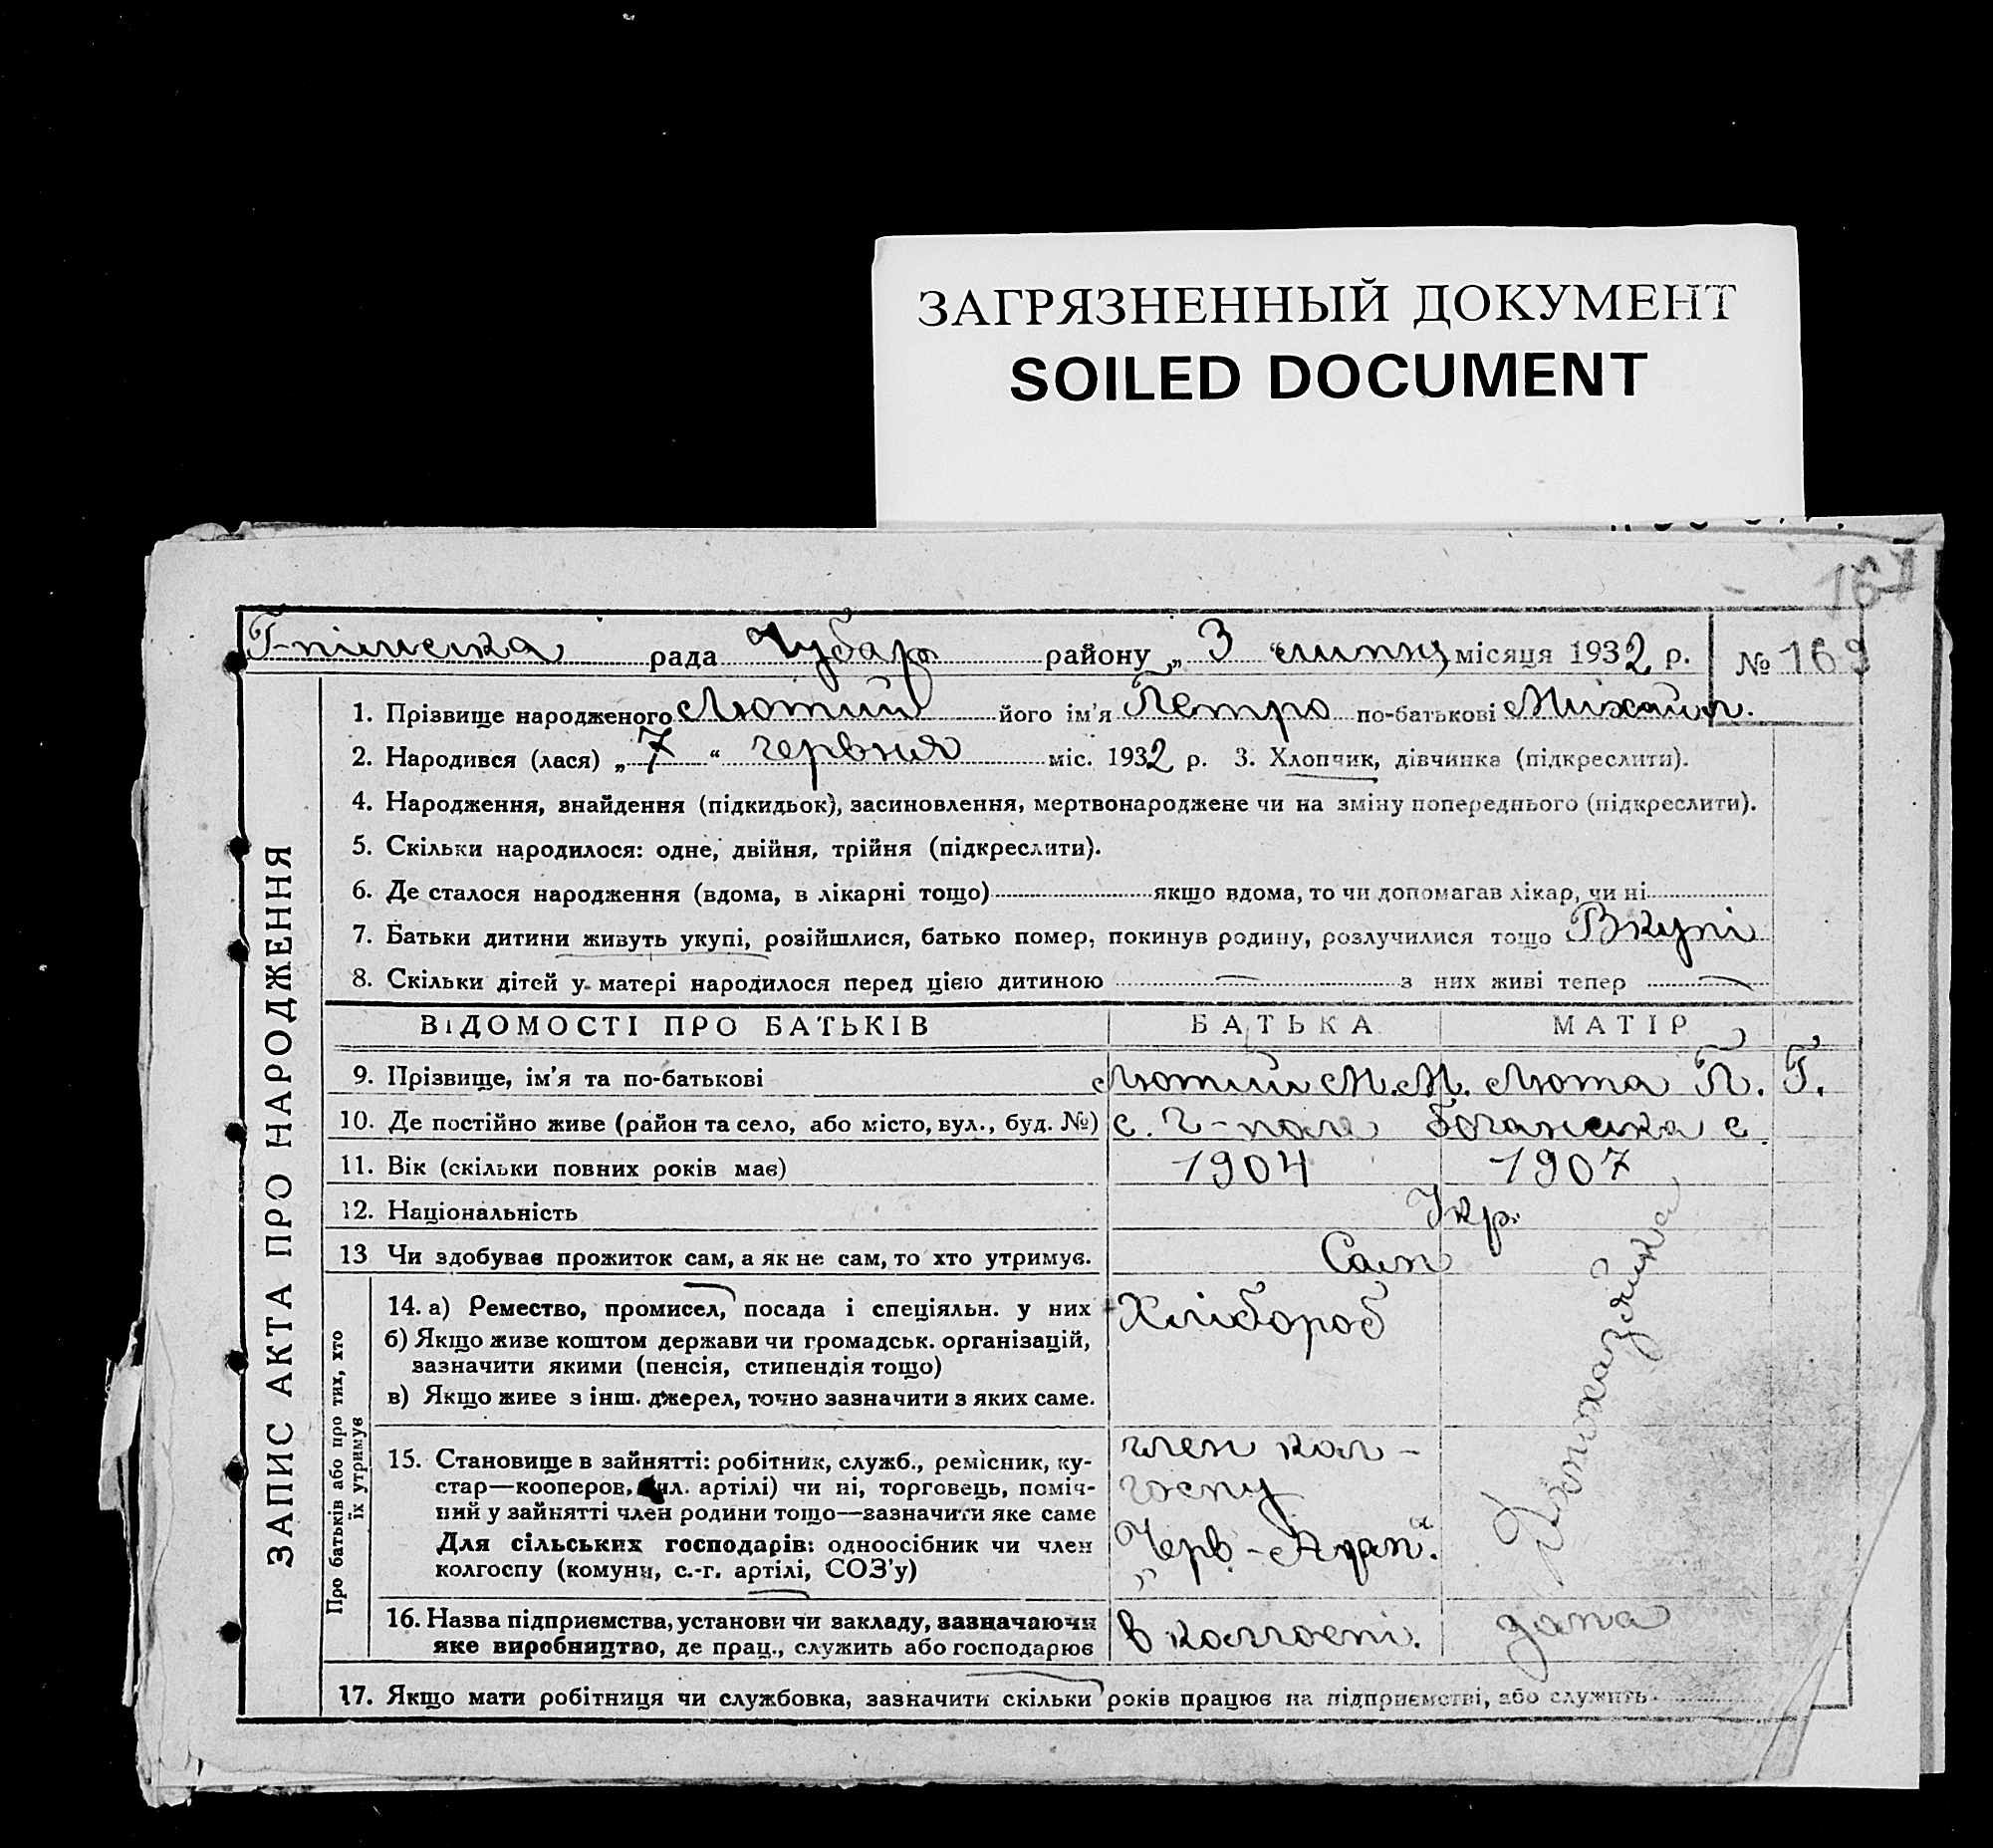 ЗАГРЯЗНЕННЫЙ ДОКУМЕНТ
SOILED DOCUMENT
167
рада Чубар району „ 3 " липця місяця 1932 р. № 169
ЗАПИС АКТА ПРО НАРОДЖЕННЯ
1. Прізвище народженого Лютий його ім'я Петро по-батькові Михайл.
2. Народився (лася) „ 7 “ червня міс. 1932 р. 3. Хлопчик, дівчинка (підкреслити).
4. Народження, знайдення (підкидьок), засиновлення, мертвонароджене чи на зміну попереднього (підкреслити).
5. Скільки народилося: одне, двійня, трійня (підкреслити).
6. Де сталося народження (вдома, в лікарні тощо) якщо вдома, то чи допомагав лікар, чи ні
7. Батьки дитини живуть укупі, розійшлися, батько помер, покинув родину, розлучилися тощо Вкупі
8. Скільки дітей у матері народилося перед цією дитиною — з них живі тепер —
ВІДОМОСТІ ПРО БАТЬКІВ БАТЬКА МАТІР
9. Прізвище, ім'я та по-батькові Лютий М.М. Люта П. Г.
10. Де постійно живе (район та село, або місто, вул., буд. №) с. Г-поле
11. Вік (скільки повних років має) 1904 1907
12. Національність Укр.
13 Чи здобуває прожиток сам, а як не сам, то хто утримує. Сам
Про батьків або про тих, хто
їх утримує
14. а) Ремество, промисел, посада і спеціяльн. у них Хлібороб
б) Якщо живе коштом держави чи громадськ. організацій,
зазначити якими (пенсія, стипендія тощо)
в) Якщо живе з інш. джерел, точно зазначити з яких саме.
Домохазяйка
15. Становище в зайнятті: робітник, служб., ремісник, ку- член кол-
стар—кооперов. (чл. артілі) чи ні, торговець, поміч- госпу
ний у зайнятті член родини тощо—зазначити яке саме
Для сільських господарів: одноосібник чи член „Черв-
колгоспу (комуни, с.-г. артілі, СОЗ'у)
16. Назва підприємства, установи чи закладу, зазначаючи в колгоспі.
яке виробництво, де прац., служить або господарює
17. Якщо мати робітниця чи службовка, зазначити скільки років працює на підприємстві, або служить